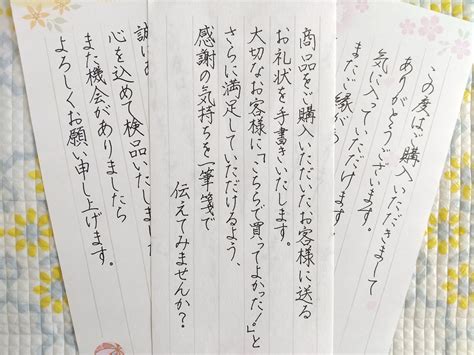 この度はご購入いただきまして
ありがとうございます。
気に入っていただけます
またご縁が
商品をご購入いただいたお客様に送る
お礼状を手書きいたします。
大切なお客様に、「こちらで買ってよかった!」と
さらに満足していただけるよう、
感謝の気持ちを一筆箋で
伝えてみませんか?
誠に
心を込めて検品いたしま
また機会がありましたら
よろしくお願い申し上げます。